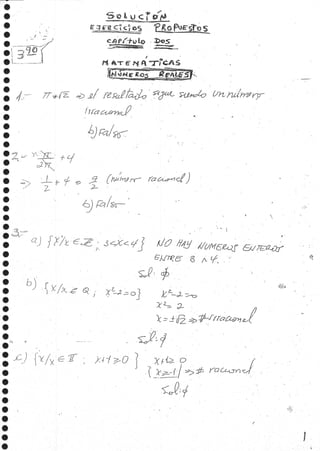 SOLUCIÓN
EJERCICIOS PROPUESTOS
CAPÍTULO DOS
390
MATEMÁTICAS
NÚMEROS REALES
1.- π+√2 => el resultado sigue siendo un número
irracional
b) Falso
2.- π/2π + 4
=> 1/2 + 4 = 9/2 (número racional)
b) Falso
3.-
a) {x/x ∈ Z : 3<x<4} NO HAY NUMEROS ENTEROS
ENTRE 3 ∧ 4.
Sol: ϕ
b) {x/x ∈ Q ; x²-2=0} x²-2=0
x²= 2
x=±√2 => # irracional
Sol: ϕ
c) {x/x ∈ II : x+1≥0} x+1≥0
{x≥-1} => # racional
Sol: ϕ
1